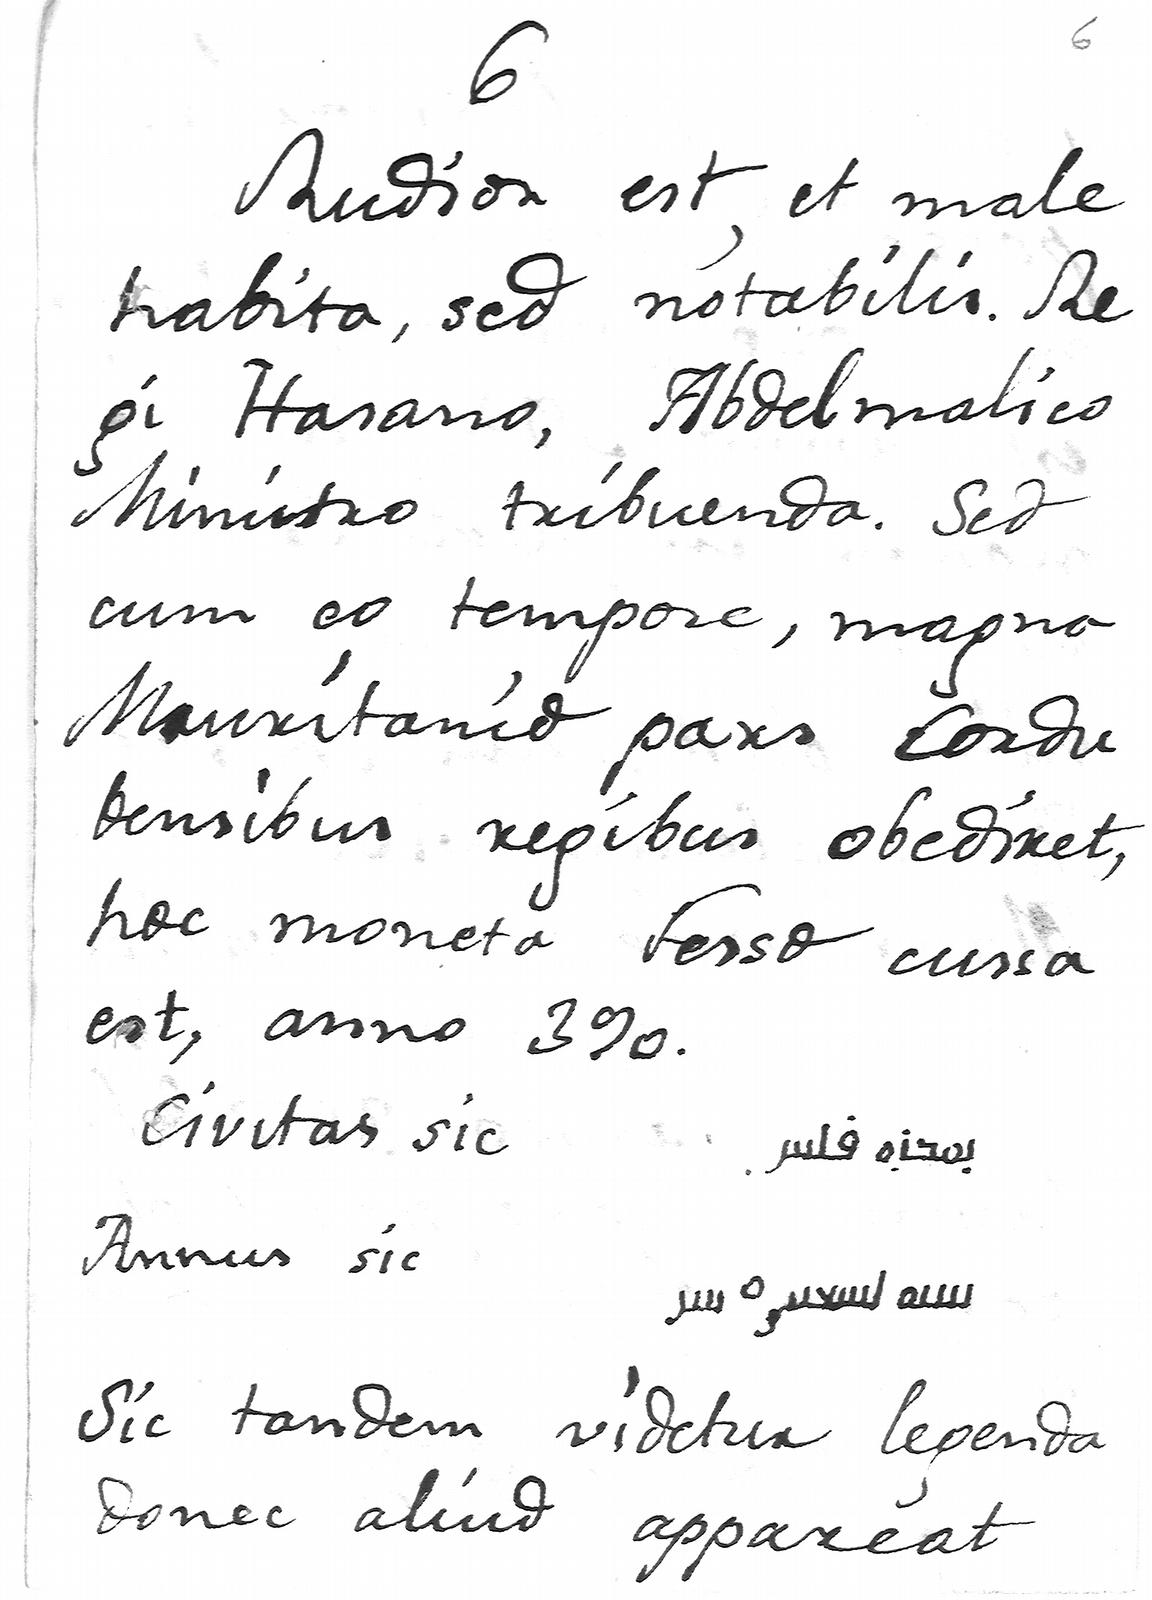 6
6
Rudior est, et male
habita, sed notabilis. Re
gi Hasano, Abdelmalico
Ministro tribuenda. Sed
cum eo tempore, magna
Mauritaniæ pars Cordu
bensibus regibus obediret,
hæc moneta Fessæ cussa
est, anno 390.
Civitas sic
Annus sic
سنه
Sic tandem videtur legenda
donec aliud appareat